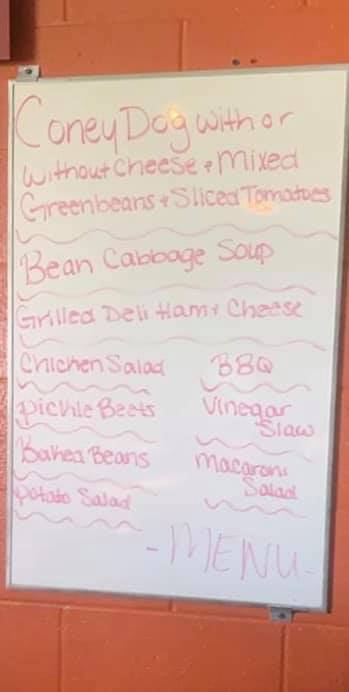 Coney Dog with or
without cheese + Mixed
Greenbeans + Sliced Tomatoes
Bean Cabbage Soup
Grilled Deli Ham + Cheese
Chicken Salad
BBQ
Pickle Beets
Vinegar
Slaw
Baked Beans
Macaroni
Salad
Potato Salad
- MENU -